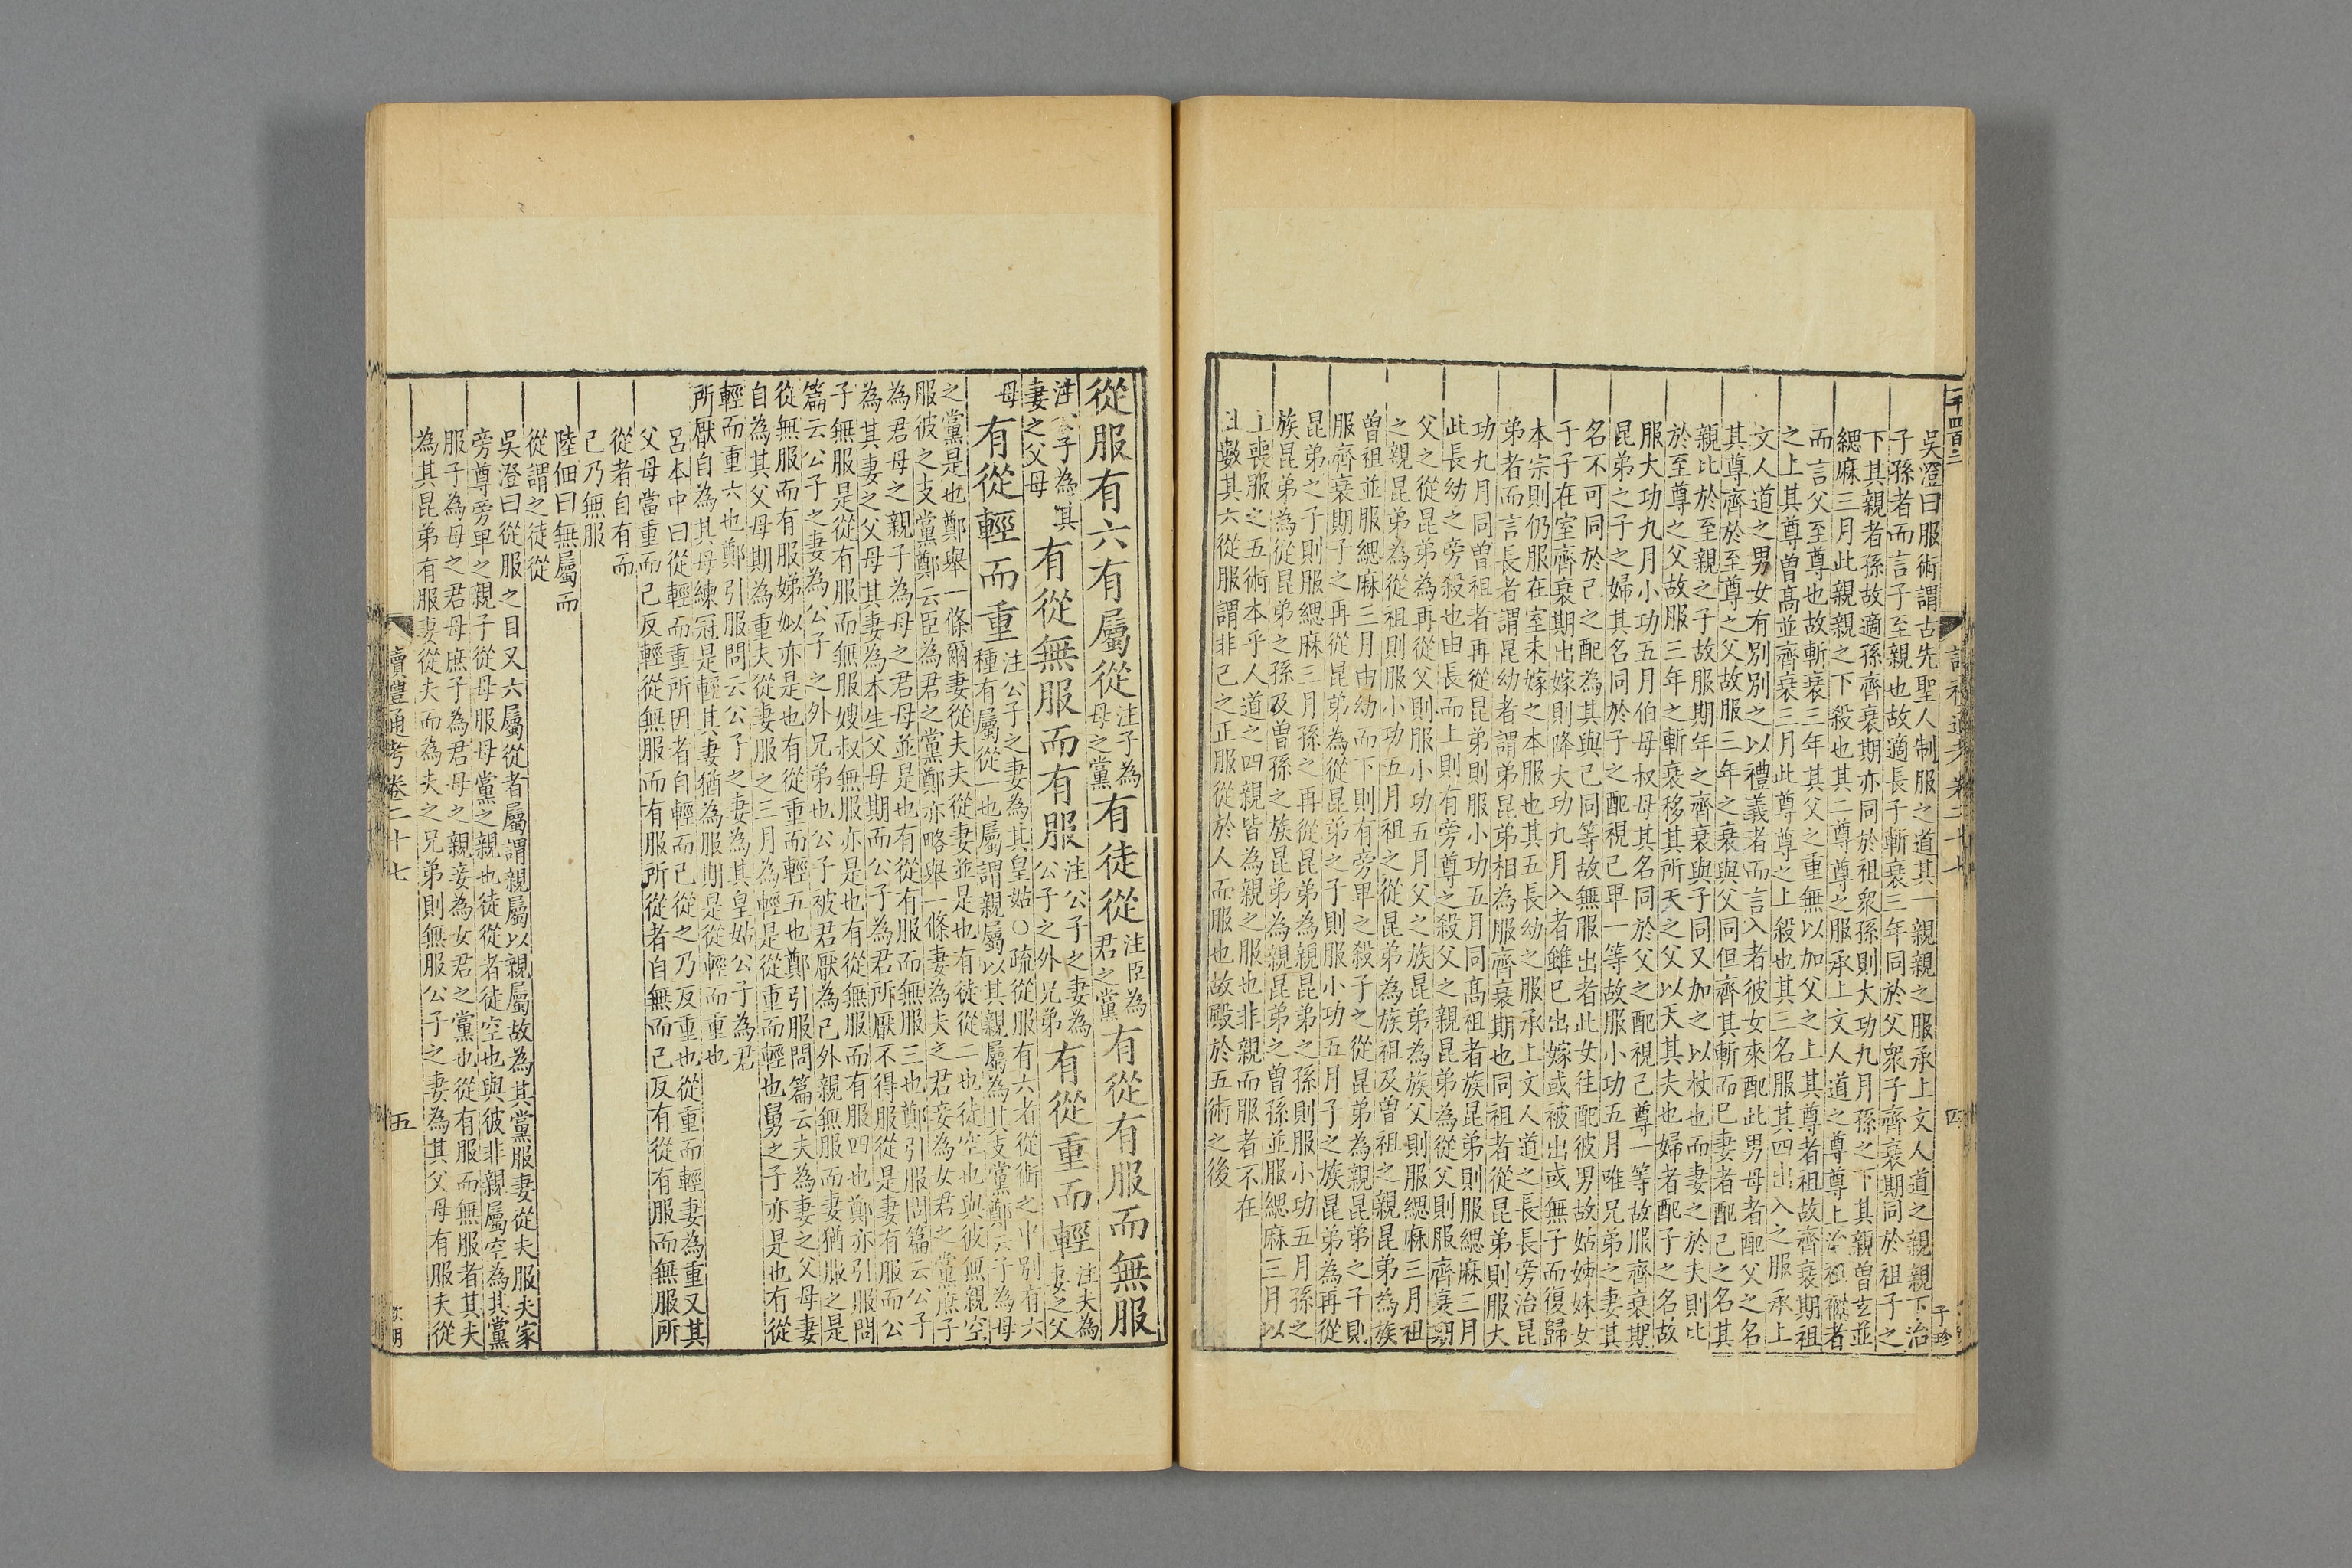 二千四百三
讀禮通考 卷二十七
四
子珍
吳澄曰服術謂古先聖人制服之道其一親親之服承上文人道之親親下治
子孫者而言子至親也故適長子斬衰三年同於父衆子齊衰期同於祖子之
下其親者孫故適孫齊衰期亦同於祖衆孫則大功九月孫之下其親曾玄並
緦麻三月此親親之下殺也其二尊尊之服承上文人道之尊尊上治祖禰者
而言父至尊也故斬衰三年其父之重無以加父之上其尊者祖故齊衰期祖
之上其尊曾高並齊衰三月此尊尊之上殺也其三名服其四出入之服承上
文人道之男女有別別之以禮義者而言入者彼女來配此男母者配父之名
其尊齊於至尊之父故服三年之衰與父同但齊其斬而已妻者配己之名其
親比於至親之子故服期年之齊衰與子同又加之以杖也而妻之於夫則比
於至尊之父故服三年之斬衰移其所天之父以天其夫也婦者配子之名故
服大功九月小功五月伯母叔母其名同於父之配視己尊一等故服齊衰期
昆弟之子之婦其名同於子之配視己卑一等故服小功五月唯兄弟之妻其
名不可同於己之配為其與己同等故無服出者此女往配彼男故姑姊妹女
子子在室齊衰期出嫁則降大功九月入者雖已出嫁或被出或無子而復歸
本宗則仍服在室未嫁之本服也其五長幼之服承上文人道之長長旁治昆
弟者而言長者謂昆幼者謂弟昆弟相為服齊衰期也同祖者從昆弟則服大
功九月同曾祖者再從昆弟則服小功五月同高祖者族昆弟則服緦麻三月
此長幼之旁殺也由長而上則有旁尊之殺父之親昆弟為從父則服齊衰期
父之從昆弟為再從父則服小功五月父之族昆弟為族父則服緦麻三月祖
之親昆弟為從祖則服小功五月祖之從昆弟為族祖及曾祖之親昆弟為族
曾祖並服緦麻三月由幼而下則有旁卑之殺子之從昆弟為親昆弟之子則
服齊衰期子之再從昆弟為從昆弟之子則服小功五月子之族昆弟為再從
昆弟之子則服緦麻三月孫之再從昆弟為親昆弟之孫則服小功五月孫之
族昆弟為從昆弟之孫及曾孫之族昆弟為親昆弟之曾孫並服緦麻三月以
上喪服之五術本乎人道之四親皆為親之服也非親而服者不在
且數其六從服謂非己之正服從於人而服也故殿於五術之後
從服有六有屬從注子為母之黨有徒從注臣為君之黨有從有服而無服
注公子為其妻之父母有從無服而有服注公子之妻為公子之外兄弟有從重而輕注夫為妻之父
母有從輕而重注公子之妻為其皇姑○疏從服有六者從術之中別有六
種有屬從一也屬謂親屬以其親屬為其支黨鄭云子為母
之黨是也鄭舉一條爾妻從夫夫從妻並是也有徒從二也徒空也與彼無親空
服彼之支黨鄭云臣為君之黨鄭亦略舉一條妻為夫之君妾為女君之黨庶子
為君母之親子為母之君母並是也有從有服而無服三也鄭引服問篇云公子
為其妻之父母其妻為本生父母期而公子為君所厭不得服從是妻有服而公
子無服是從有服而無服嫂叔無服亦是也有從無服而有服四也鄭亦引服問
篇云公子之妻為公子之外兄弟也公子被君厭為己外親無服而妻猶服之是
從無服而有服娣姒亦是也有從重而輕五也鄭引服問篇云夫為妻之父母妻
自為其父母期為重夫從妻服之三月為輕是從重而輕也舅之子亦是也有從
輕而重六也鄭引服問云公子之妻為其皇姑公子為君
所厭自為其母練冠是輕其妻猶為服期是從輕而重也
呂本中曰從輕而重所因者自輕而己從之乃反重也從重而輕妻為重又其
父母當重而己反輕從無服而有服所從者自無而己反有從有服而無服所
從者自有而
己乃無服
陸佃曰無屬而
從謂之徒從
吳澄曰從服之目又六屬從者屬謂親屬以親屬故為其黨服妻從夫服夫家
旁尊旁卑之親子從母服母黨之親也徒從者徒空也與彼非親屬空為其黨
服子為母之君母庶子為君母之親妾為女君之黨也從有服而無服者其夫
為其昆弟有服妻從夫而為夫之兄弟則無服公子之妻為其父母有服夫從
讀禮通考卷二十七
五